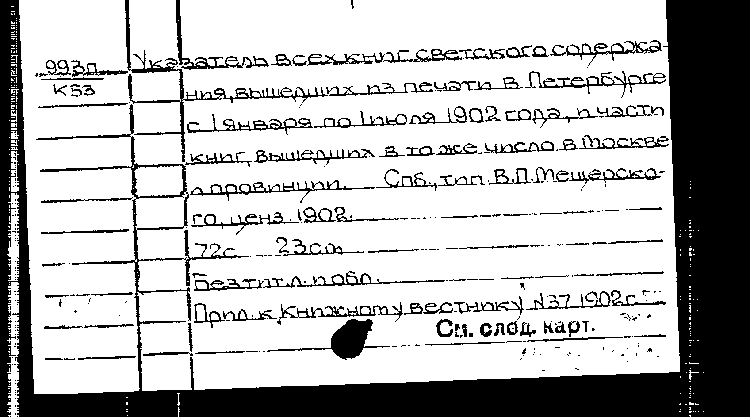 993п Указатель всех книг светского содержа-
К53
ния, вышедших из печати в Петербурге
с 1 января по 1 июля 1902 года, и части
книг, вышедших в то же число в Москве
и провинции. Спб., тип. В.П. Мещерско-
го, ценз. 1902.
72с. 23см
Без тит. л. и обл.
Прил. к "Книжному вестнику" №37 1902 г.
См. след. карт.